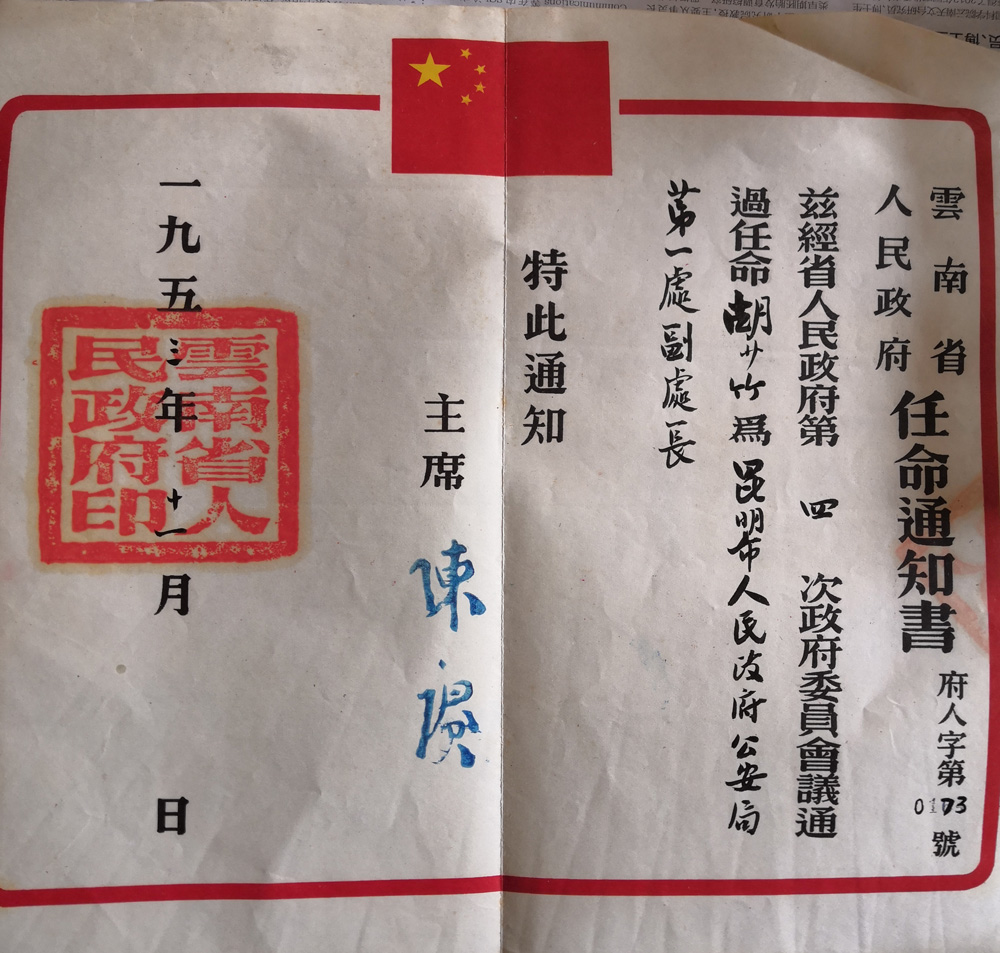 雲南省
人民政府
任命通知書
府人字第0173號
茲經省人民政府第 四 次政府委員會議通
過任命胡少竹爲昆明市人民政府公安局
第一處副處長
特此通知
主席 陳賡
一九五三年十一月 日
雲南省人
民政府印